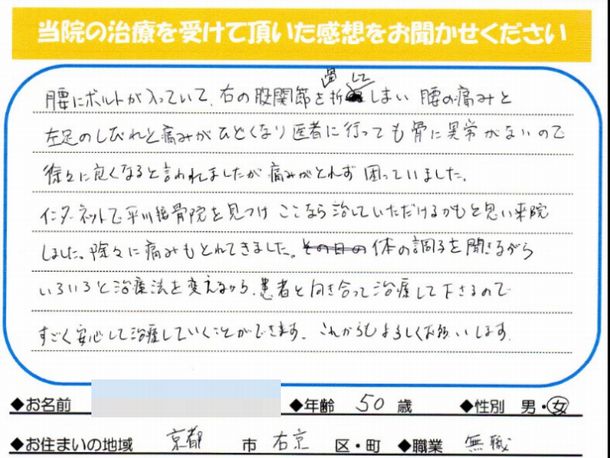 当院の治療を受けて頂いた感想をお聞かせください
腰にボルトが入っていて、右の股関節を折してしまい 腰の痛みと
左足のしびれと痛みがひどくなり医者に行っても骨に異常がないので
徐々に良くなると言われましたが痛みがとれず困っていました。
インターネットで平川接骨院を見つけここなら治していただけるかもと思い来院
しました。除々に痛みもとれてきました。その日の体の調子を聞きながら
いろいろと治療法を変えながら、患者と向き合って治療して下さるので
すごく安心して治療していくことができます。これからもよろしくお願いします。
◆お名前 ◆年齢 50 歳 ◆性別 男・女
◆お住まいの地域 京都 市 右京 区・町 ◆職業 無職